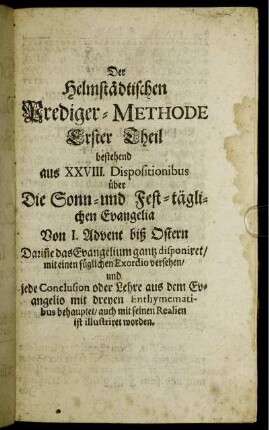 Der
Helmstädtischen
Prediger-METHODE
Erster Theil
bestehend
aus XXVIII. Dispositionibus
über
Die Sonn- und Fest-tägli-
chen Evangelia
Von I. Advent biß Ostern
Darinne das Evangelium gantz disponiret/
mit einen füglichen Exordio versehen/
und
jede Conclusion oder Lehre aus dem Ev-
angelio mit dreyen Enthymemati-
bus behauptet/ auch mit seinen Realien
ist illustriret worden.